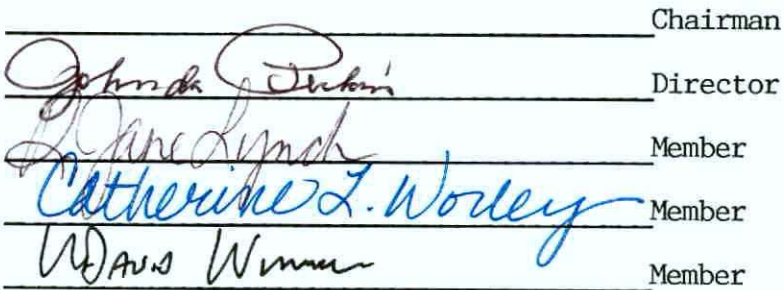 Chairman
Johnda Perkins Director
L. Jane Lynch Member
Catherine L. Worley Member
Davis Member